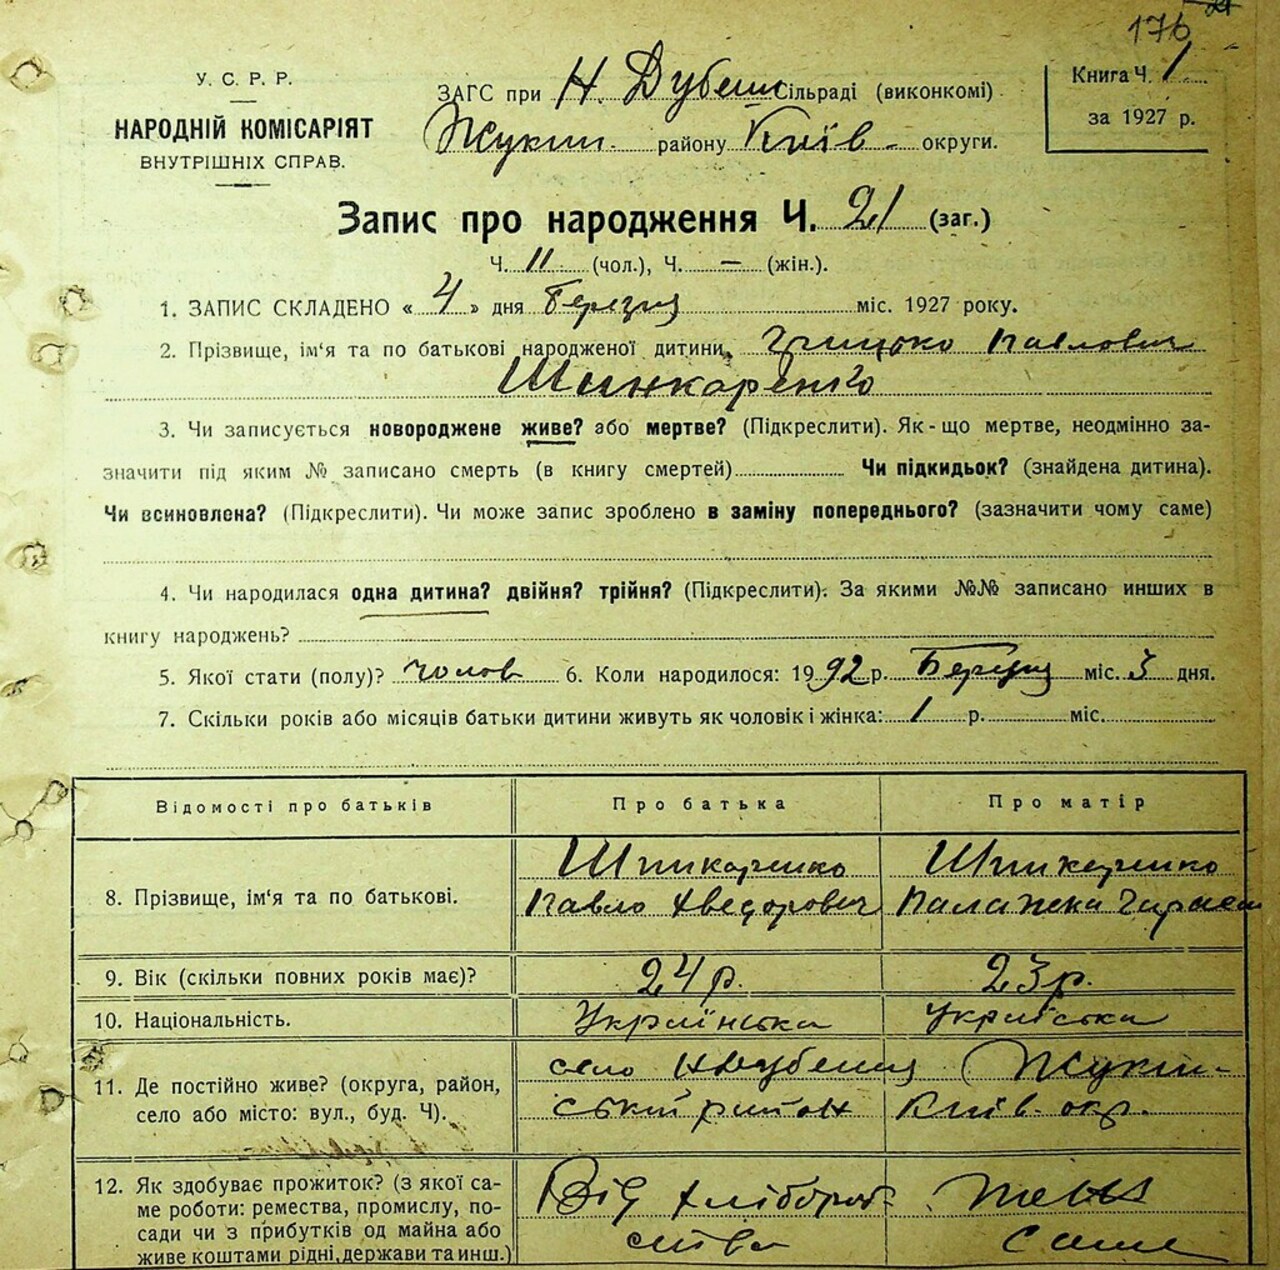 176
У. С. Р. Р.
НАРОДНІЙ КОМІСАРІЯТ
ВНУТРІШНІХ СПРАВ.
ЗАГС при Н. Дубешн Сільраді (виконкомі)
Жукин району Київ - округи.
Книга Ч. 1
за 1927 р.
Запис про народження Ч. 21 (заг.)
Ч. 11 (чол.), Ч. — (жін.).
1. ЗАПИС СКЛАДЕНО « 4 » дня Березня міс. 1927 року.
2. Прізвище, ім'я та по батькові народженої дитини Грицько Павлович
Шинкаренко
3. Чи записується новороджене живе? або мертве? (Підкреслити). Як-що мертве, неодмінно за-
значити під яким № записано смерть (в книгу смертей) Чи підкидьок? (знайдена дитина).
Чи всиновлена? (Підкреслити). Чи може запис зроблено в заміну попереднього? (зазначити чому саме)
4. Чи народилася одна дитина? двійня? трійня? (Підкреслити). За якими №№ записано инших в
книгу народжень?
5. Якої стати (полу)? чолов 6. Коли народилося: 1992 р. Березня міс. 3 дня.
7. Скільки років або місяців батьки дитини живуть як чоловік і жінка: 1 р. міс.
Відомості про батьків Про батька Про матір
8. Прізвище, ім'я та по батькові.
Шинкаренко
Павло Хведорович
Шинкаренко
Палажка
9. Вік (скільки повних років має)? 24 р. 23 р.
10. Національність. Українська Українська
11. Де постійно живе? (округа, район,
село або місто: вул., буд. Ч).
село Н Дубешня (Жукин-
ський район Київ. окр.
12. Як здобуває прожиток? (з якої са-
ме роботи: ремества, промислу, по-
сади чи з прибутків од майна або
живе коштами рідні, держави та инш.)
Від хлібороб-
ства
теж
саме